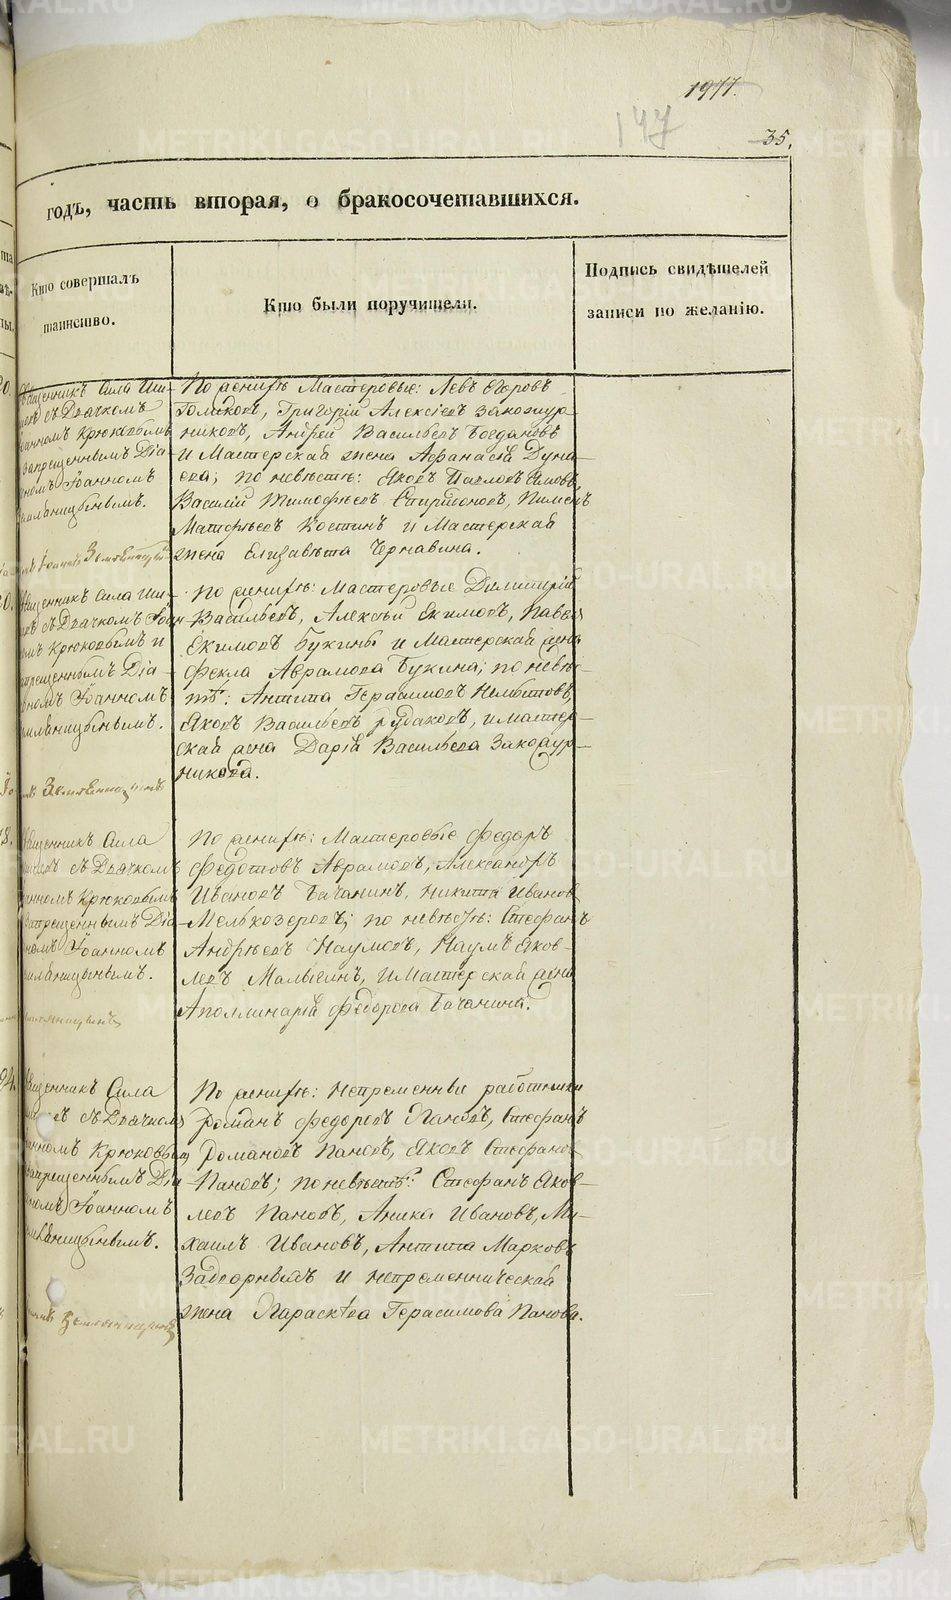 1977.
177
35.
годъ, часть вторая, о бракосочетавшихся.
Кто совершалъ
таинство.
Кто были поручители.
Подпись свидѣтелей
записи по желанію.
Священникъ Сила Ши-
съ Дьячкомъ
Іоанномъ Крюковымъ
запрещеннымъ Діа-
кономъ Іоанномъ
По женихѣ Мастеровые: Левъ Егоровъ
Голиковъ, Григорій Алексѣевъ Закожур-
никовъ, Андрей Васильевъ Богдановъ
и Мастерская жена Афанасія Дуна-
ева; по невѣстѣ: Яковъ Павловъ
Василій Тимофѣевъ Спиридоновъ, Пименъ
Матфѣевъ Костинъ и Мастерская
жена Елизавета Чернавина.
Священникъ Сила Ши-
съ Дьячкомъ Іоан-
номъ Крюковымъ и
запрещеннымъ Діа-
кономъ Іоанномъ
По женихѣ: Мастеровые Димитрій
Васильевъ, Алексѣй Екимовъ, Павелъ
Екимовъ Букины и Мастерская жена
Фекла Аврамова Букина; по невѣс-
тѣ: Антипа Герасимовъ
Яковъ Васильевъ Рудаковъ, и мастер-
ская жена Дарія Васильева Закожур-
никова.
Священникъ Сила
съ Дьячкомъ
Іоанномъ Крюковымъ
запрещеннымъ Діа-
кономъ Іоанномъ
По женихѣ: Мастеровые Федоръ
Федотовъ Аврамовъ, Александръ
Ивановъ Бачанинъ, Никита Ивановъ
Мелькозеровъ; по невѣстѣ: Стефанъ
Андрѣевъ Наумовъ, Наумъ Яков-
левъ Малыгинъ, и Мастерская жена
Аполлинарія Федорова Бачанина.
Священникъ Сила
съ Дьячкомъ
Іоанномъ Крюковым
запрещеннымъ Діа-
кономъ Іоанномъ
По женихѣ: Непременные работники
Романъ Федоровъ Пановъ, Стефанъ
Романовъ Пановъ, Яковъ Стефановъ
Пановъ; по невѣстѣ: Стефанъ Яков-
левъ Пановъ, Аника Ивановъ, Ми-
хаилъ Ивановъ, Антипа Марковъ
Задворныхъ и непременническая
жена Параскѣва Герасимова Панова.
METRIKI.GASO-URAL.RU